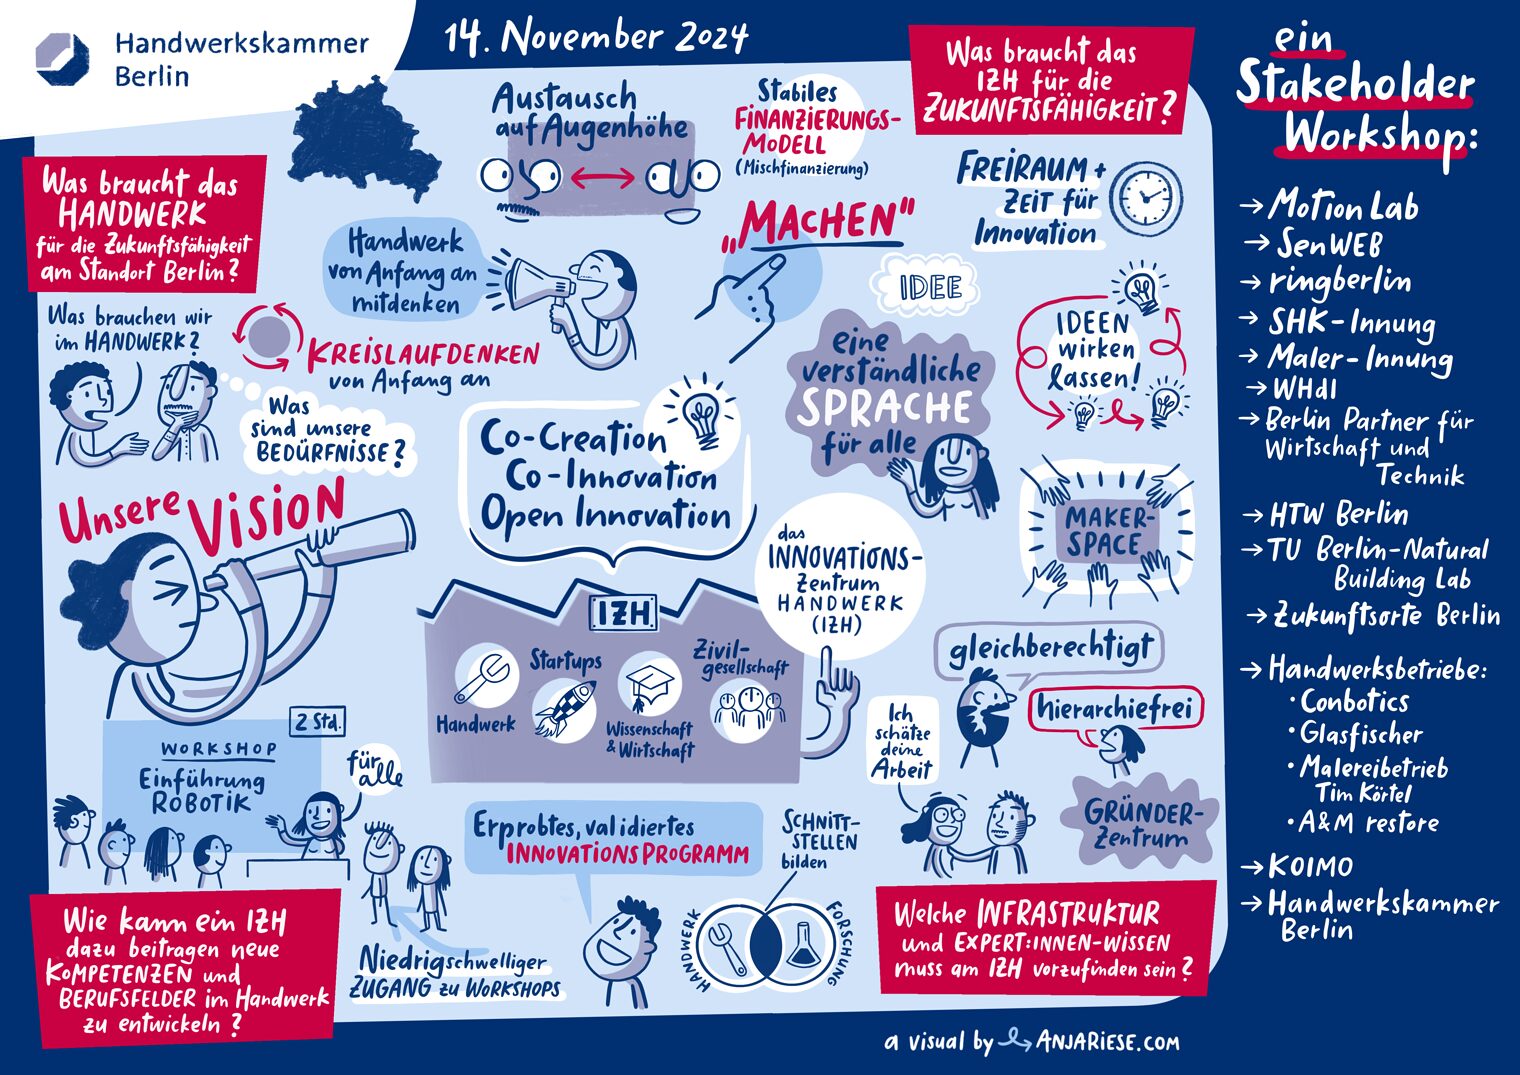 Handwerkskammer
Berlin
14. November 2024
Was braucht das
HANDWERK
für die Zukunftsfähigkeit
am Standort Berlin?
Was brauchen wir
im HANDWERK?
Was
sind unsere
BEDÜRFNISSE?
KREISLAUFDENKEN
von Anfang an
Handwerk
von Anfang an
mitdenken
Austausch
auf Augenhöhe
Stabiles
FINANZIERUNGS-
MODELL
(Mischfinanzierung)
„MACHEN"
Was braucht das
IZH für die
ZUKUNFTSFÄHIGKEIT?
FREIRAUM +
ZEIT für
Innovation
IDEE
eine
verständliche
SPRACHE
für alle
IDEEN
wirken
lassen!
MAKER-
SPACE
Unsere VISION
Co-Creation
Co-Innovation
Open Innovation
das
INNOVATIONS-
Zentrum
HANDWERK
(IZH)
IZH
Handwerk
Startups
Wissenschaft
& Wirtschaft
Zivil-
gesellschaft
gleichberechtigt
hierarchiefrei
Ich
schätze
deine
Arbeit
GRÜNDER-
Zentrum
2 Std.
WORKSHOP
Einführung
ROBOTIK
für
alle
Niedrigschwelliger
ZUGANG zu WORKSHOPS
Erprobtes, validiertes
INNOVATIONSPROGRAMM
SCHNITT-
STELLEN
bilden
HANDWERK
FORSCHUNG
Wie kann ein IZH
dazu beitragen neue
KOMPETENZEN und
BERUFSFELDER im Handwerk
zu entwickeln?
Welche INFRASTRUKTUR
und EXPERT:INNEN-WISSEN
muss am IZH vorzufinden sein?
a visual by ANJARIESE.COM
ein
Stakeholder
Workshop:
→ Motion Lab
→ SenWEB
→ ringberlin
→ SHK-Innung
→ Maler-Innung
→ WHdI
→ Berlin Partner für
Wirtschaft und
Technik
→ HTW Berlin
→ TU Berlin-Natural
Building Lab
→ Zukunftsorte Berlin
→ Handwerksbetriebe:
• Conbotics
• Glasfischer
• Malereibetrieb
Tim Körtel
• A&M restore
→ KOIMO
→ Handwerkskammer
Berlin